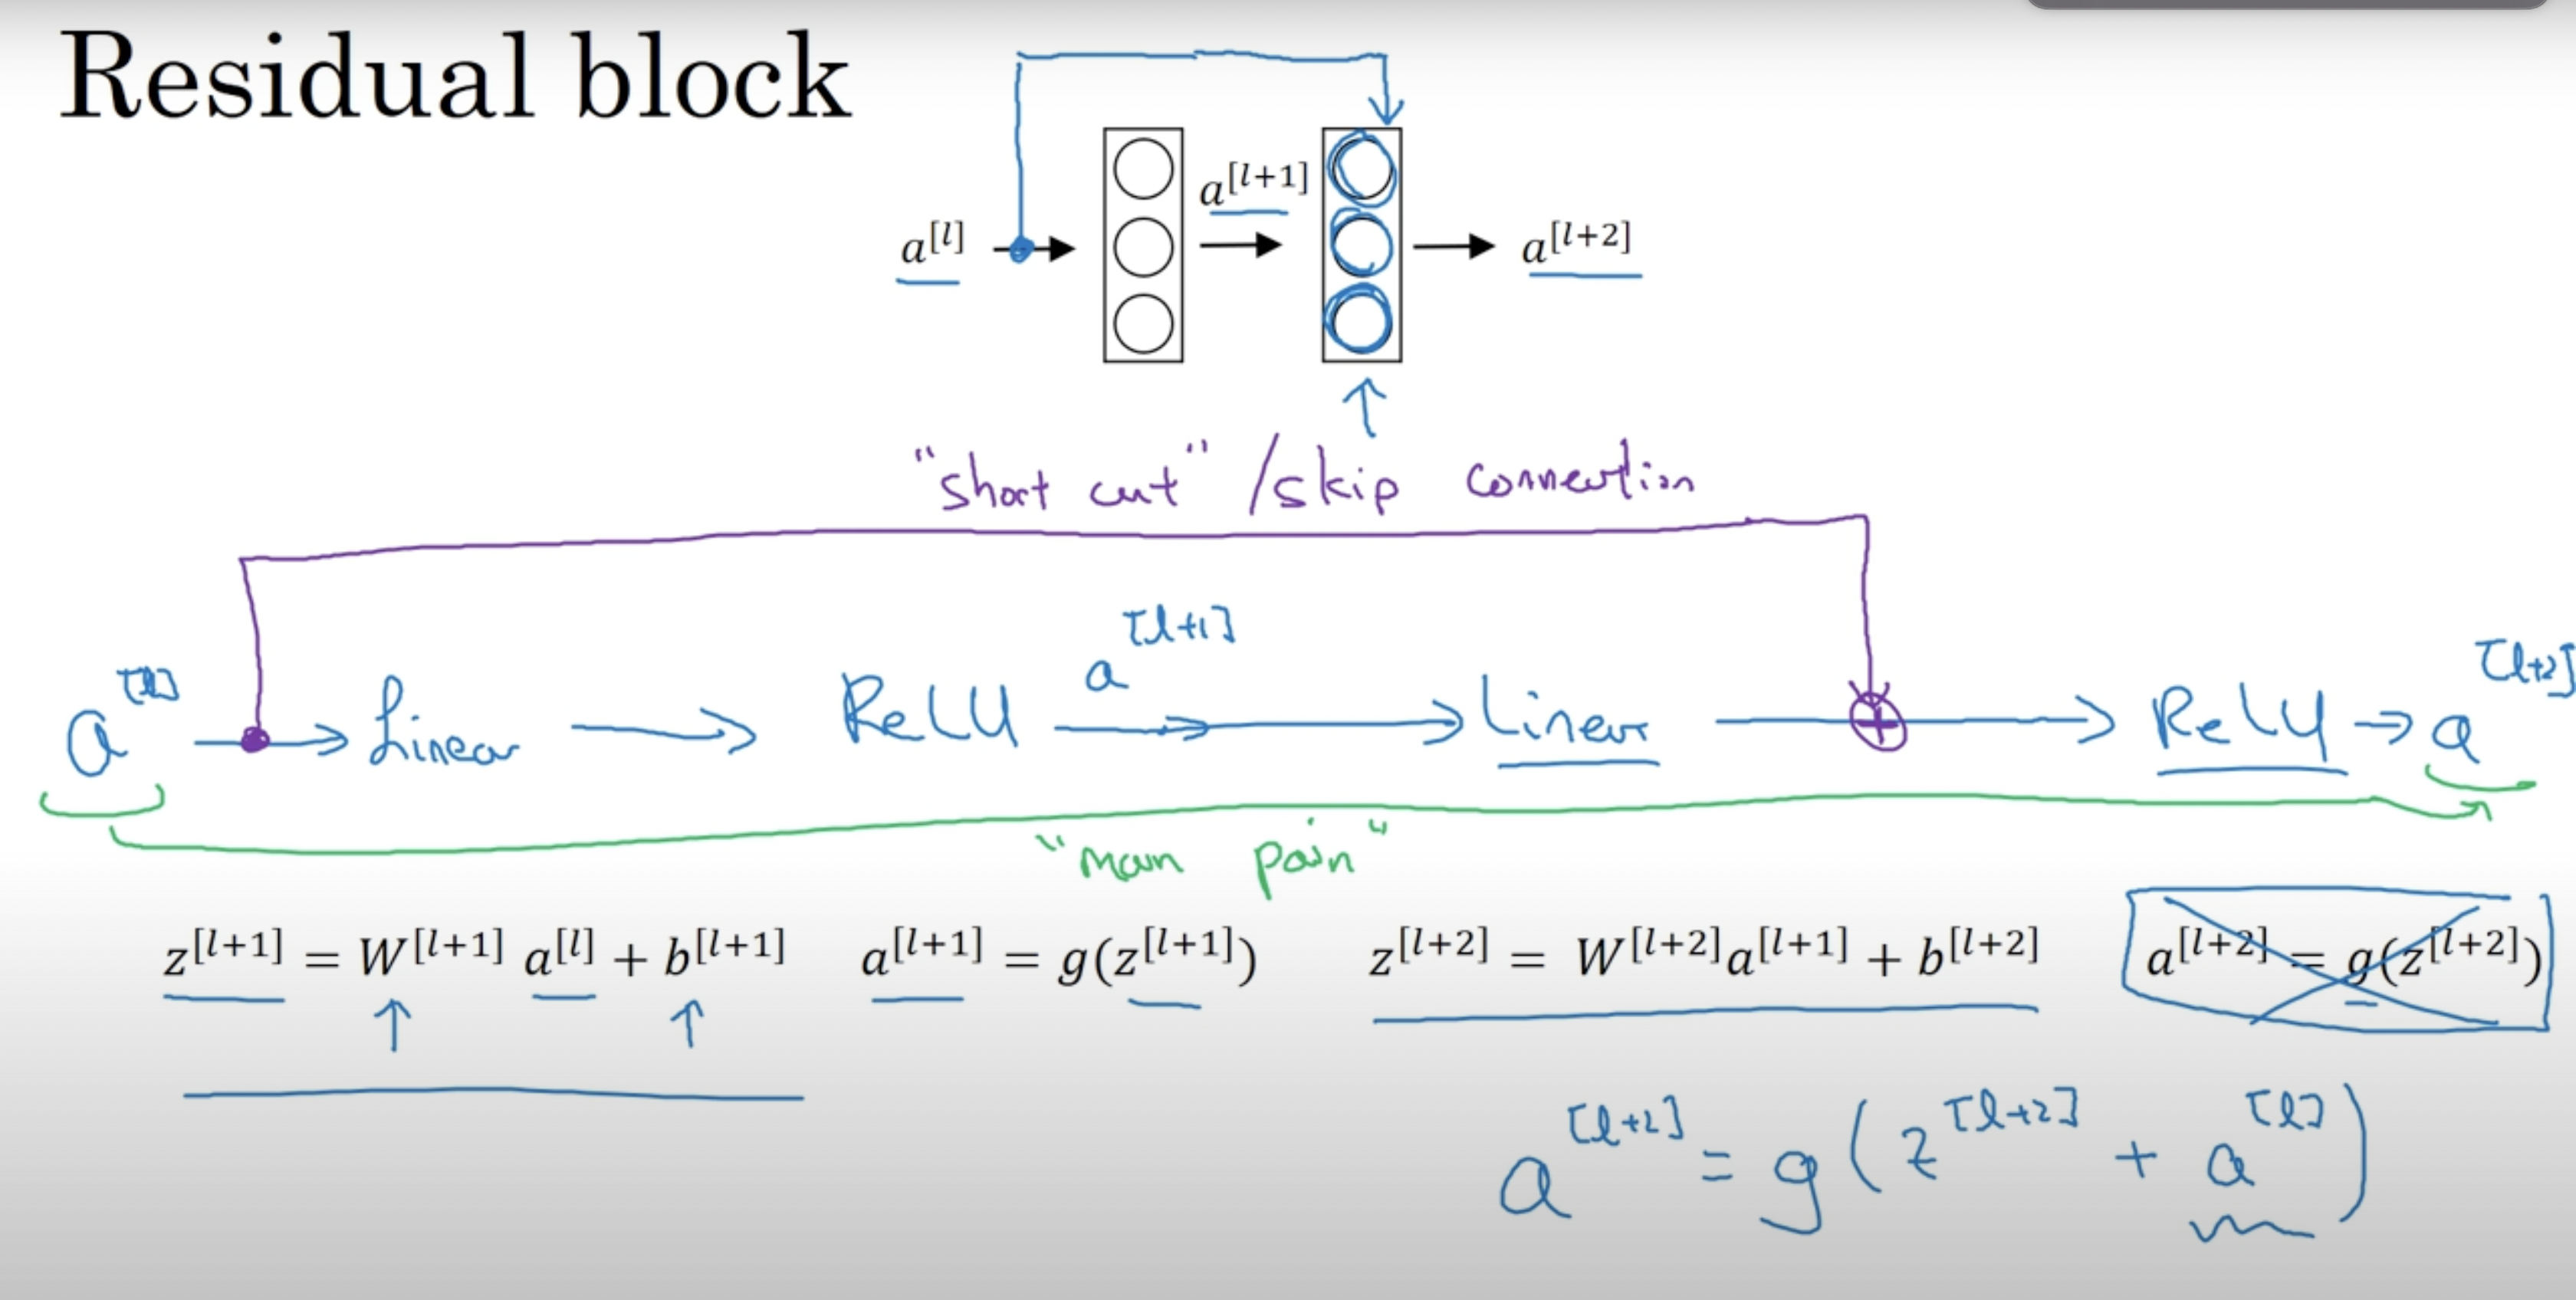 Residual block
a^[l] a^[l+1] a^[l+2]
"short cut" / skip connection
a^[l] → Linear → ReLU a^[l+1] → Linear → ⊕ → ReLU → a^[l+2]
"main path"
z^[l+1] = W^[l+1] a^[l] + b^[l+1] a^[l+1] = g(z^[l+1]) z^[l+2] = W^[l+2] a^[l+1] + b^[l+2] a^[l+2] = g(z^[l+2])
a^[l+2] = g(z^[l+2] + a^[l])